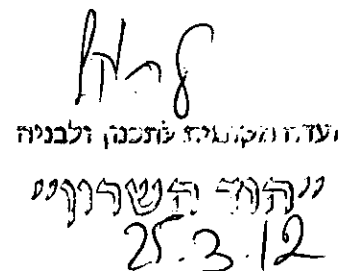 ועדה מקומית לתכנון ולבניה
״הוד השרון״
25.3.12